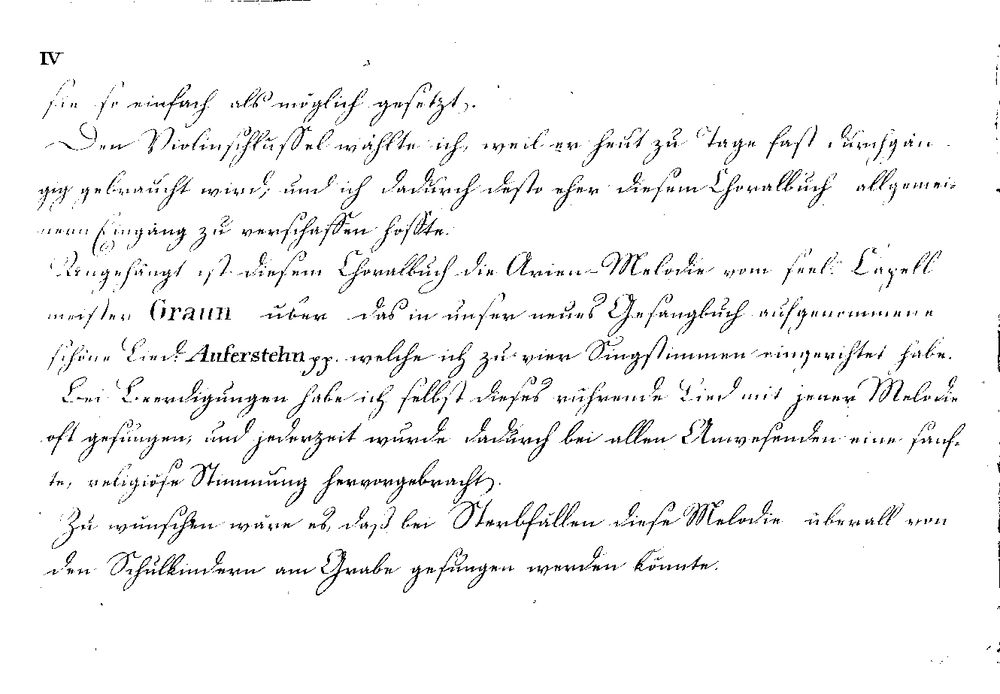 IV
sie so einfach als möglich gesetzt.
Den Violinschlüssel wählte ich, weil er heut zu Tage fast durchgän-
gig gebraucht wird; und ich dadurch desto eher diesem Choralbuch allgemei-
nern Eingang zu verschaffen hoffte.
Angehängt ist diesem Choralbuch die Arien-Melodie vom seel: Capell
meister Graun über das in unser neues Gesangbuch aufgenommene
schöne Lied: Auferstehn pp. welche ich zu vier Singstimmen eingerichtet habe.
Bei Beerdigungen habe ich selbst dieses rührende Lied mit jener Melodie
oft gesungen, und jederzeit wurde dadurch bei allen Anwesenden eine sanf-
te, religiöse Stimmung hervorgebracht.
Zu wünschen wäre es, daß bei Sterbfällen diese Melodie überall von
den Schulkindern am Grabe gesungen werden könnte.